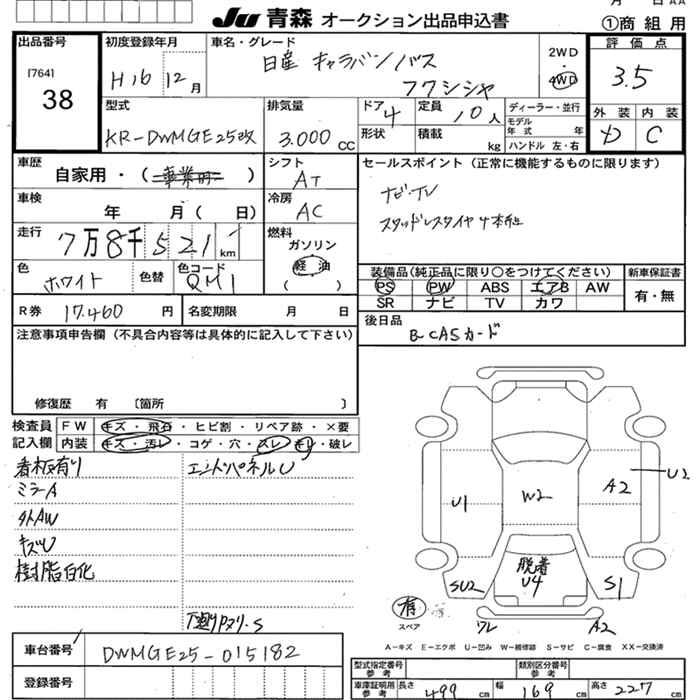 月 日 AA
Ju 青森 オークション出品申込書
①商 組 用
出品番号
[764]
38
初度登録年月
H16 12月
車名・グレード
日産 キャラバンバス
2WD
4WD
評価点
3.5
型式
KR-DWMGE25改
排気量
3.000 CC
ドア 4
形状
定員 10人
積載 kg
ディーラー・並行
モデル年式 年
ハンドル 左・右
外装
D
内装
C
車歴
自家用・(事業用)
シフト
AT
セールスポイント(正常に機能するものに限ります)
ナビ・TV
スタッドレスタイヤ4本付
車検
年 月(日)
冷房
AC
走行
7万8千521km
燃料
ガソリン
軽油
( )
色
ホワイト
色替
色コード
QM1
装備品(純正品に限り○をつけてください)
PS PW ABS エアB AW
SR ナビ TV カワ
新車保証書
有・無
R券 17.460円
名変期限 月 日
後日品
B-CASカード
注意事項申告欄(不具合内容等は具体的に記入して下さい)
修復歴 有 〔箇所 〕
検査員記入欄
FW キズ・飛石・ヒビ割・リペア跡・×要
内装 キズ・汚レ・コゲ・穴・スレ・キレ・破レ
看板有り
エンドパネルU
ミラーA
外AW
キズU
樹脂白化
U1
W2
A2
U2
脱着
U4
SU2
S1
有
スペア
ワレ
A2
A-キズ E-エクボ U-凹み W-補修跡 S-サビ C-腐食 XX-交換済
車台番号
DWMGE25-015182
登録番号
型式指定番号
参考
類別区分番号
参考
車庫証明用
参考
長さ 499 cm
幅 169 cm
高さ 227 cm